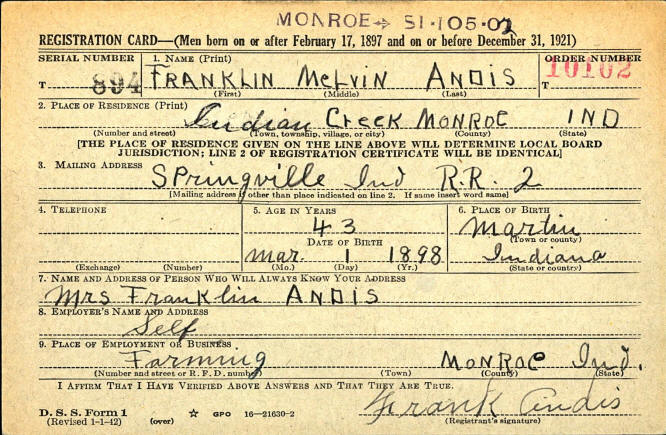 MONROE → S1-105-02
REGISTRATION CARD—(Men born on or after February 17, 1897 and on or before December 31, 1921)
SERIAL NUMBER 1. NAME (Print) ORDER NUMBER
T 894 FRANKLIN MELVIN ANDIS T 10102
(First) (Middle) (Last)
2. PLACE OF RESIDENCE (Print)
Indian Creek MONROE IND
(Number and street) (Town, township, village, or city) (County) (State)
[THE PLACE OF RESIDENCE GIVEN ON THE LINE ABOVE WILL DETERMINE LOCAL BOARD
JURISDICTION; LINE 2 OF REGISTRATION CERTIFICATE WILL BE IDENTICAL]
3. MAILING ADDRESS
SPringville Ind R.R. 2
[Mailing address if other than place indicated on line 2. If same insert word same]
4. TELEPHONE 5. AGE IN YEARS 6. PLACE OF BIRTH
43 Martin
DATE OF BIRTH (Town or county)
Mar. 1 1898 Indiana
(Exchange) (Number) (Mo.) (Day) (Yr.) (State or country)
7. NAME AND ADDRESS OF PERSON WHO WILL ALWAYS KNOW YOUR ADDRESS
Mrs Franklin ANDIS
8. EMPLOYER'S NAME AND ADDRESS
Self
9. PLACE OF EMPLOYMENT OR BUSINESS
Farming MONROE Ind.
(Number and street or R. F. D. number) (Town) (County) (State)
I AFFIRM THAT I HAVE VERIFIED ABOVE ANSWERS AND THAT THEY ARE TRUE.
D. S. S. Form 1 ☆ GPO 16—21630-2 Frank Andis
(Revised 1-1-42) (over) (Registrant's signature)